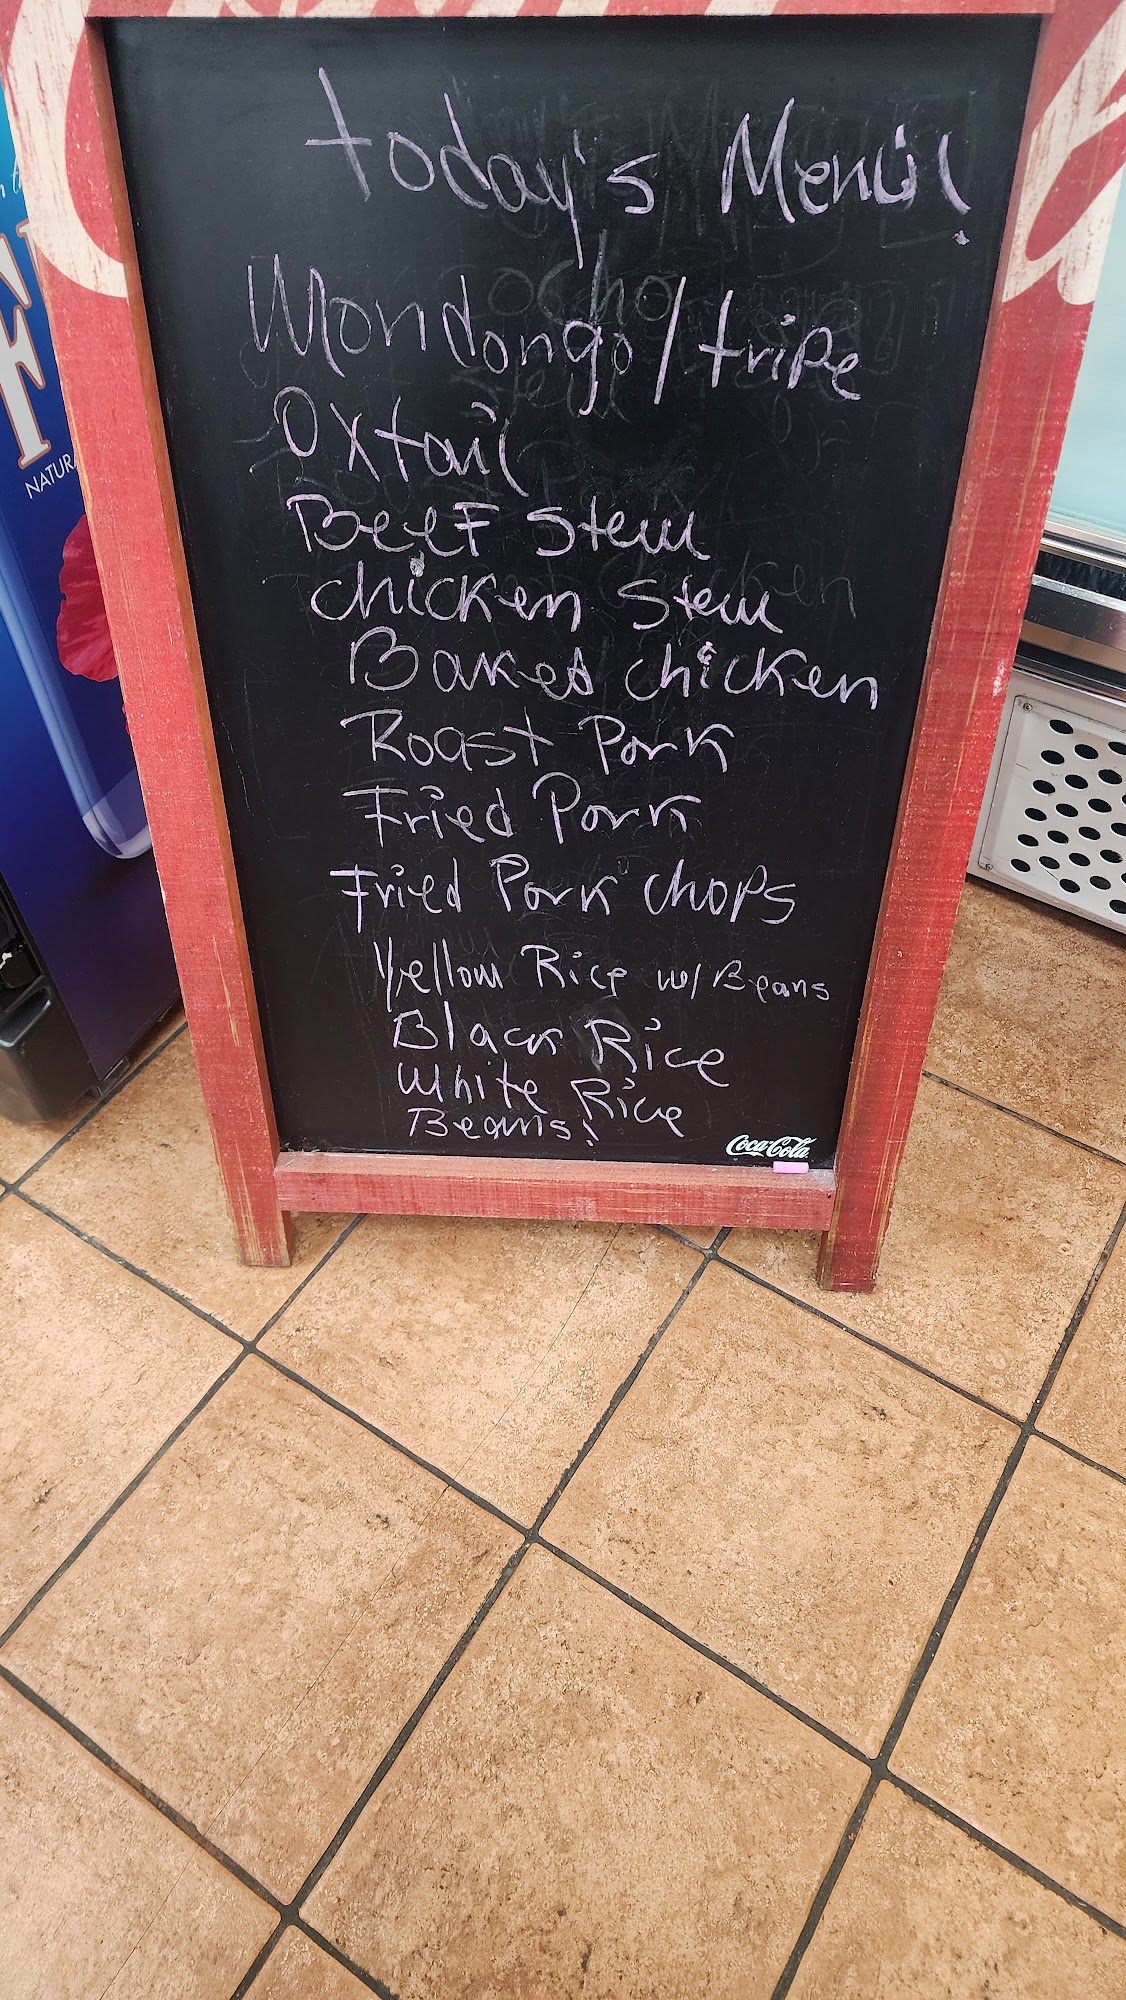 today's Menu!
Mondongo/tripe
Oxtail
Beef Stew
chicken Stew
Baked chicken
Roast Pork
Fried Pork
Fried Pork chops
Yellow Rice w/ Beans
Black Rice
White Rice
Beans!
Coca-Cola
NATURA